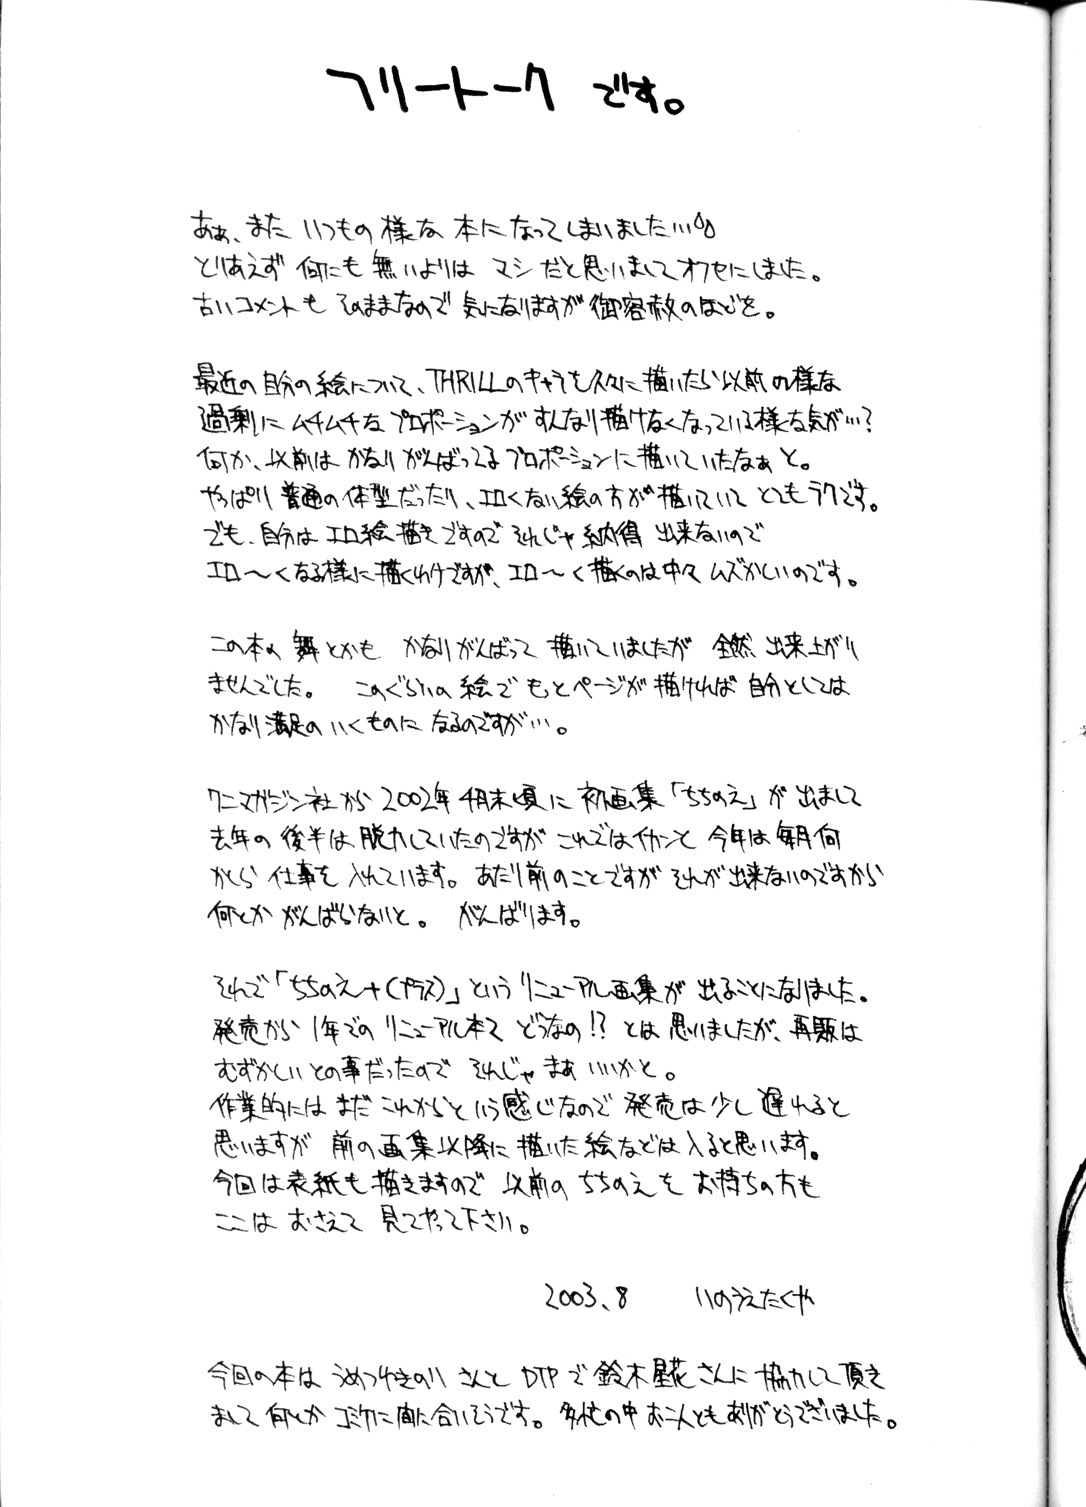 フリートークです。
あぁ、また いつもの 様な 本に なって しまいました…
とりあえず 何にも 無いよりは マシ だと 思いまして オフセにしました。
古いコメントも そのままなので 気になりますが 御容赦のほどを。
最近の 自分の 絵について、THRILLのキャラを 久々に 描いたら 以前の様な
過剰に ムチムチな プロポーションが すんなり 描けなくなっている様な気が…?
何か、以前は かなり がんばってる プロポーションに 描いていたなぁ と。
やっぱり 普通の 体型だったり、エロくない絵の方が 描いていて とてもラクです。
でも、自分は エロ絵描き ですので それじゃ 納得 出来ないので
エロ〜く なる様に 描くわけですが、エロ〜く 描くのは 中々 ムズかしいのです。
この本の 舞とかも かなり がんばって 描いていましたが 全然 出来上がり
ませんでした。 このぐらいの 絵で もっとページが 描ければ 自分としては
かなり 満足の いくものに なるのですが…。
ワニマガジン社から 2002年 4月末頃に 初画集「ちちのえ」が 出まして
去年の 後半は 脱力していたのですが これではイカンと 今年は 毎月 何
かしら 仕事を 入れています。あたり前のことですが それが 出来ないのですから
何とか がんばらないと。 がんばります。
それで「ちちのえ+(プラス)」という リニューアル画集が 出ることになりました。
発売から 1年での リニューアル本て どうなの!? とは 思いましたが、再販は
むずかしい との事だったので それじゃ まぁ いいかと。
作業的には まだ これからと いう感じなので 発売は 少し 遅れると
思いますが 前の 画集以降に 描いた 絵などは 入ると思います。
今回は 表紙も 描きますので 以前の ちちのえを お持ちの方も
ここは おさえて 見てやって下さい。
2003.8 いのうえたくや
今回の本は うめつゆきのり さんと DTP で 鈴木星花さんに 協力して 頂き
まして 何とか コミケに 間に合いそうです。多忙の中 お二人とも ありがとうございました。